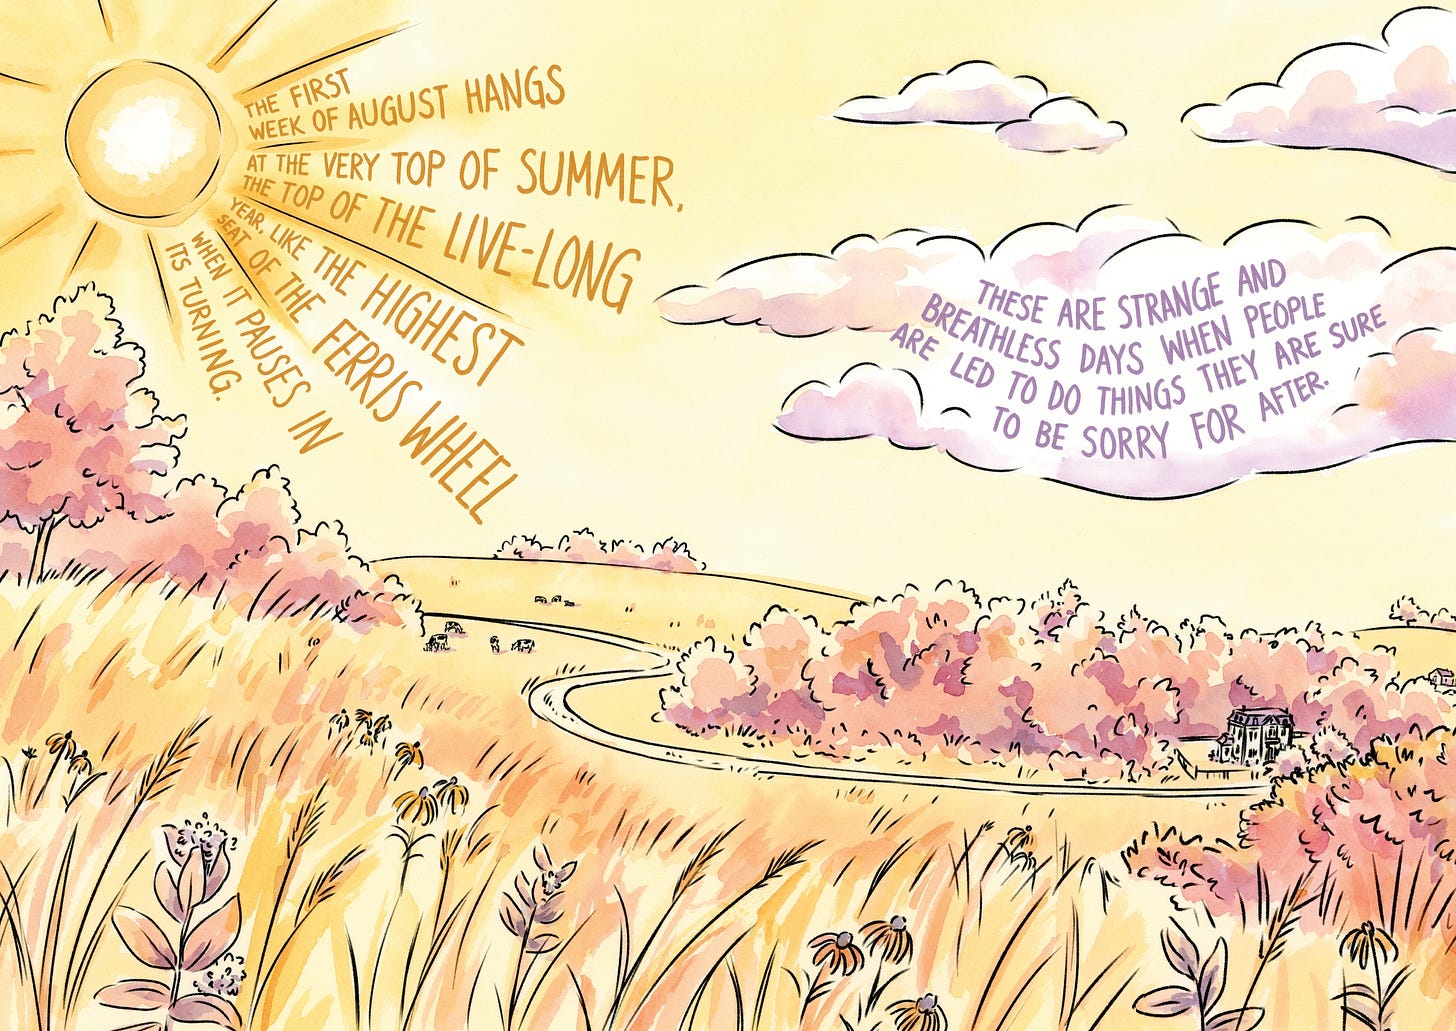 THE FIRST
WEEK OF AUGUST HANGS
AT THE VERY TOP OF SUMMER,
THE TOP OF THE LIVE-LONG
YEAR, LIKE THE HIGHEST
SEAT OF THE FERRIS WHEEL
WHEN IT PAUSES IN
ITS TURNING.
THESE ARE STRANGE AND
BREATHLESS DAYS WHEN PEOPLE
ARE LED TO DO THINGS THEY ARE SURE
TO BE SORRY FOR AFTER.